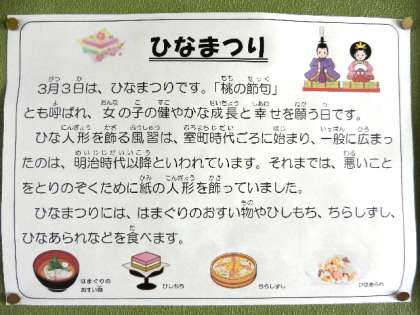 ひなまつり
3月3日は、ひなまつりです。「桃の節句」
とも呼ばれ、女の子の健やかな成長と幸せを願う日です。
ひな人形を飾る風習は、室町時代ごろに始まり、一般に広まっ
たのは、明治時代以降といわれています。それまでは、悪いこと
をとりのぞくために紙の人形を飾っていました。
ひなまつりには、はまぐりのおすい物やひしもち、ちらしずし、
ひなあられなどを食べます。
はまぐりの
おすい物
ひしもち
ちらしずし
ひなあられ